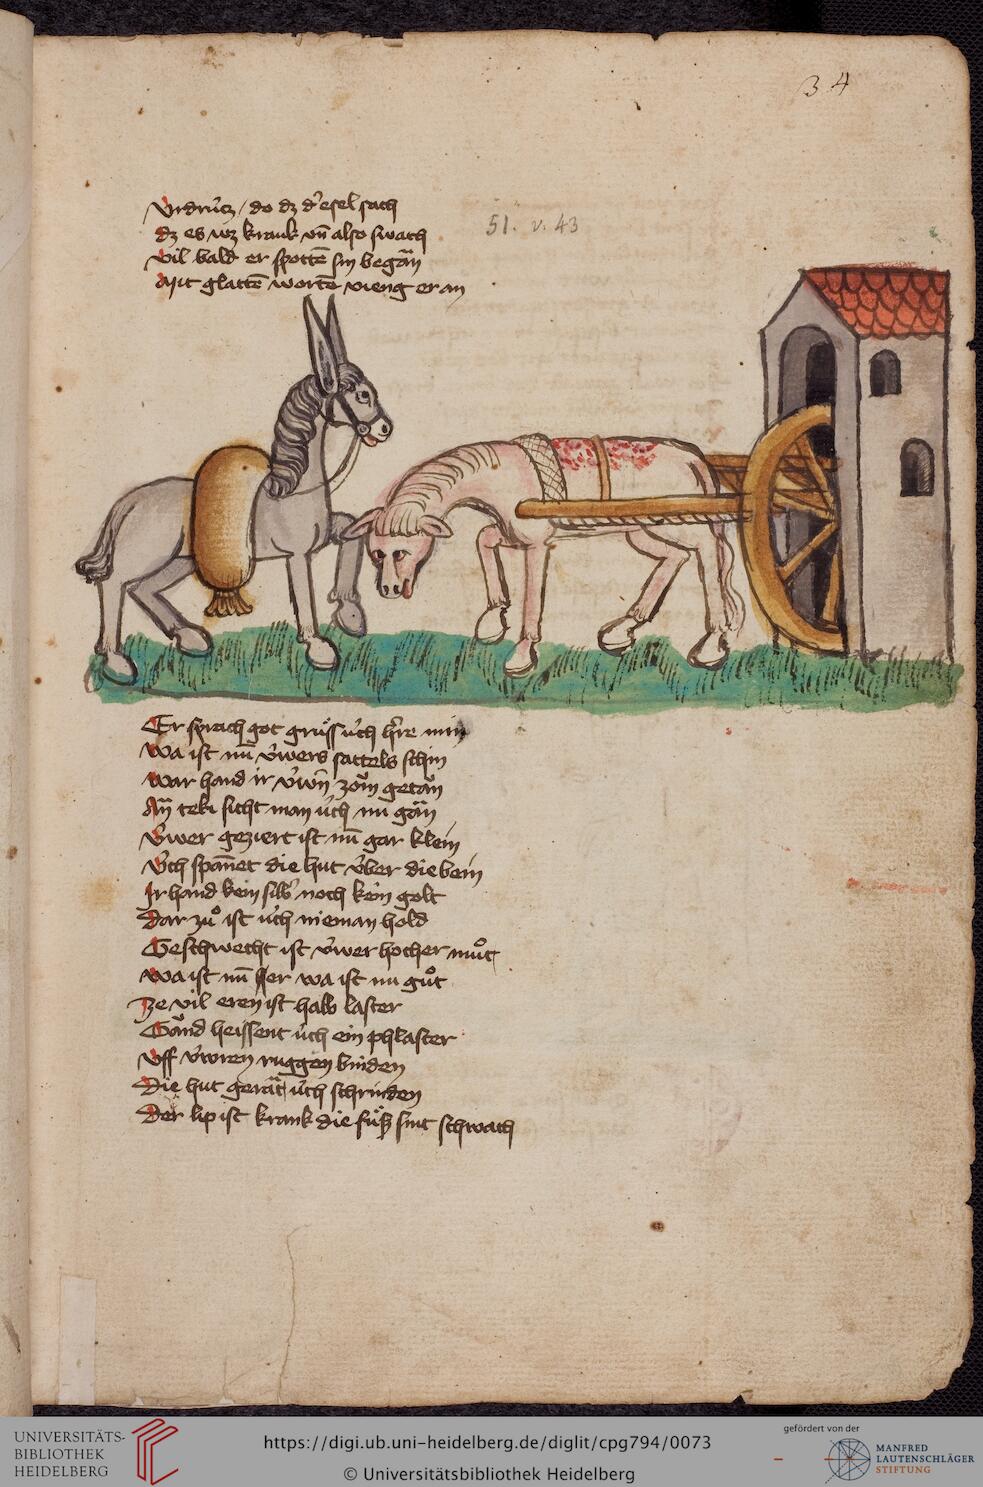 34
Vrdrúcz / do dz d'esel sach
51. v. 43
dz es wz krank vn̄ also swach
vil bald er spottē sin began̄
Mit glattē wortē vieng er an
Er sprach got grüss úch h're min
Wa ist nū v́wers sattels schin
War hand ir v́wn̄ zom getan
An teki sicht man úch nu gän
V́wer geziert ist nū gar klein
V́ch spannet die hut v́ber die bein
Ir hand kein silb' noch kein golt
Dar zuͦ ist úch nieman hold
Geschwecht ist v́wer hocher muͦt
Wa ist nū er wa ist nu guͦt
Ze vil eren ist halb laster
Gänd heissent úch ein phlaster
Vff v́wren ruggen binden
Die hut gerät úch schrinden
Der lip ist krank die füss sint schwach
UNIVERSITÄTS-
BIBLIOTHEK
HEIDELBERG
https://digi.ub.uni-heidelberg.de/diglit/cpg794/0073
© Universitätsbibliothek Heidelberg
gefördert von der
MANFRED
LAUTENSCHLÄGER
STIFTUNG